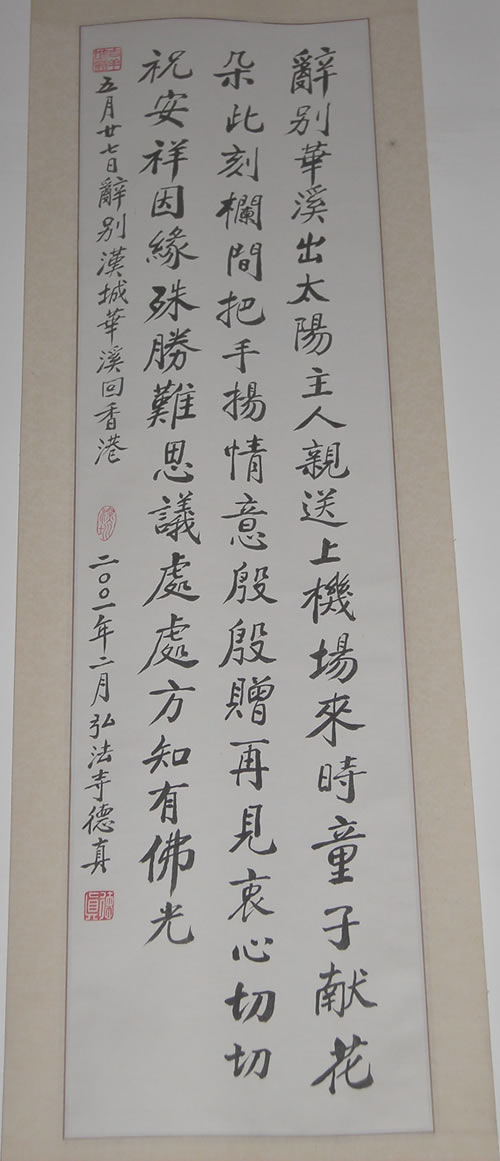 辭別華溪出太陽主人親送上機場來時童子献花
朵此刻欄間把手揚情意殷殷贈再見衷心切切
祝安祥因緣殊勝難思議處處方知有佛光
五月廿七日辭別漢城華溪回香港
二〇〇一年二月弘法寺德真